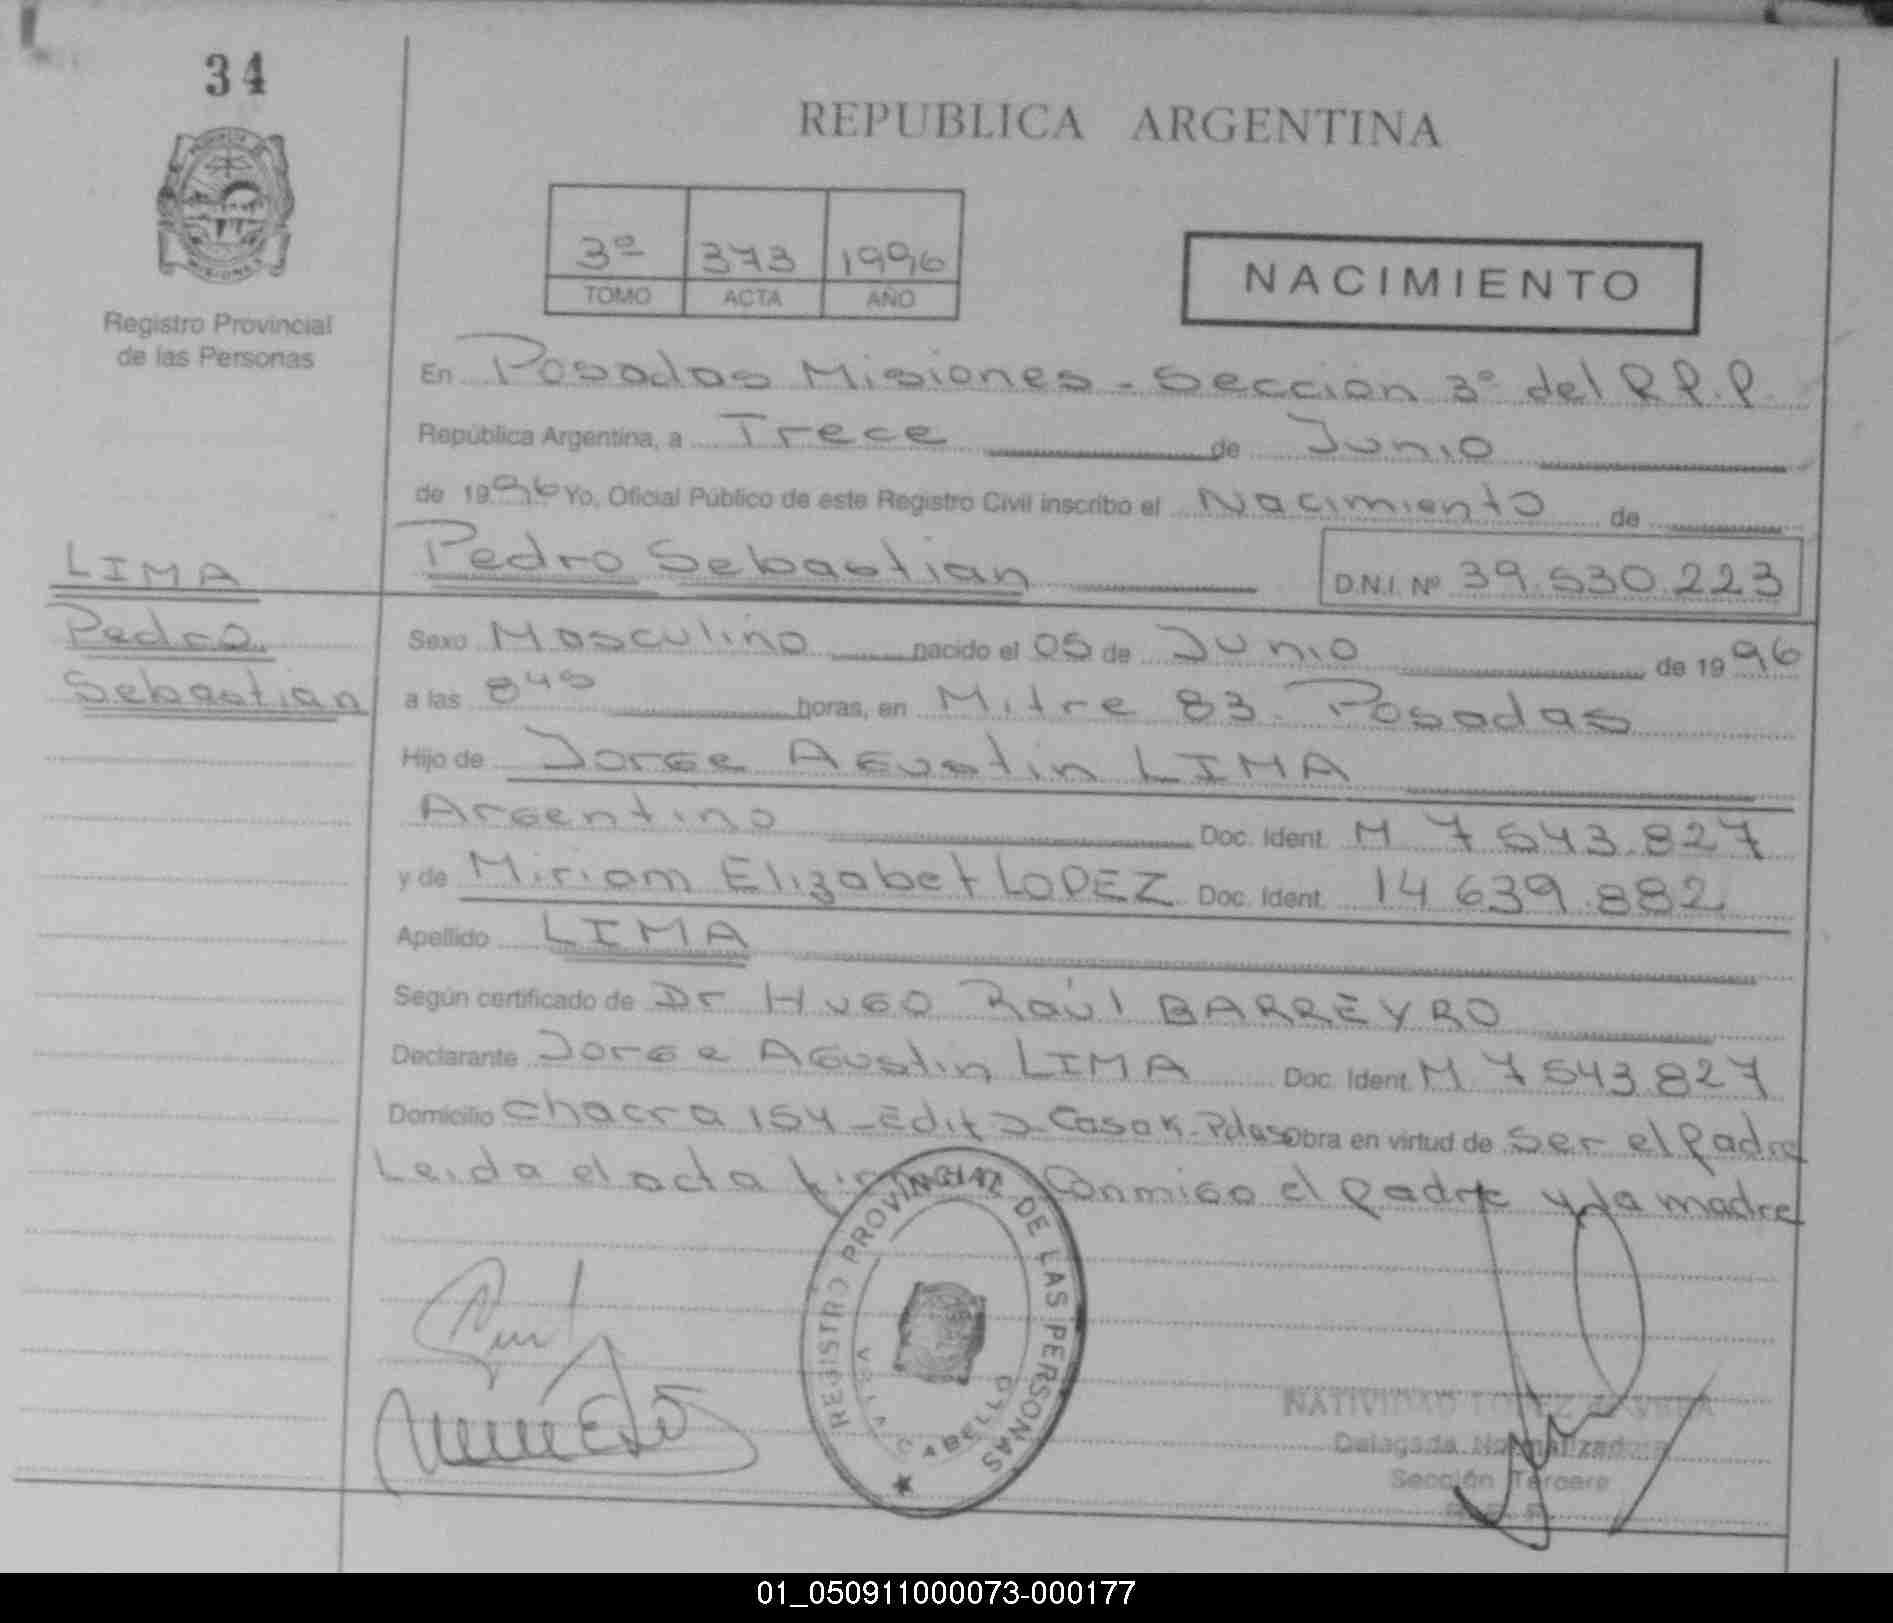 34
REPUBLICA ARGENTINA
MISIONES
Registro Provincial
de las Personas
3º 373 1996
TOMO ACTA AÑO
NACIMIENTO
En Posadas Misiones - Seccion 3º del R.P.P.
República Argentina, a Trece de Junio
de 1996 Yo, Oficial Público de este Registro Civil inscribo el Nacimiento de
LIMA
Pedro
Sebastian
Pedro Sebastian D.N.I. Nº 39.530.223
Sexo Masculino nacido el 05 de Junio de 1996
a las 845 horas, en Mitre 83. Posadas
Hijo de Jorge Agustin LIMA
Argentino Doc. Ident. M 7543.827
y de Miriam Elizabet LOPEZ Doc. Ident. 14 639.882
Apellido LIMA
Según certificado de Dr Hugo Raúl BARREYRO
Declarante Jorge Agustin LIMA Doc. Ident. M 7543.827
Domicilio chacra 154 - Edif - Casa K - Pdas obra en virtud de ser el Padre
Leida el acta Conmigo el padre y la madre
REGISTRO PROVINCIAL DE LAS PERSONAS
CABELLO
NATIVIDAD LOPEZ
Delegada Normalizadora
Sección Tercera
01_050911000073-000177